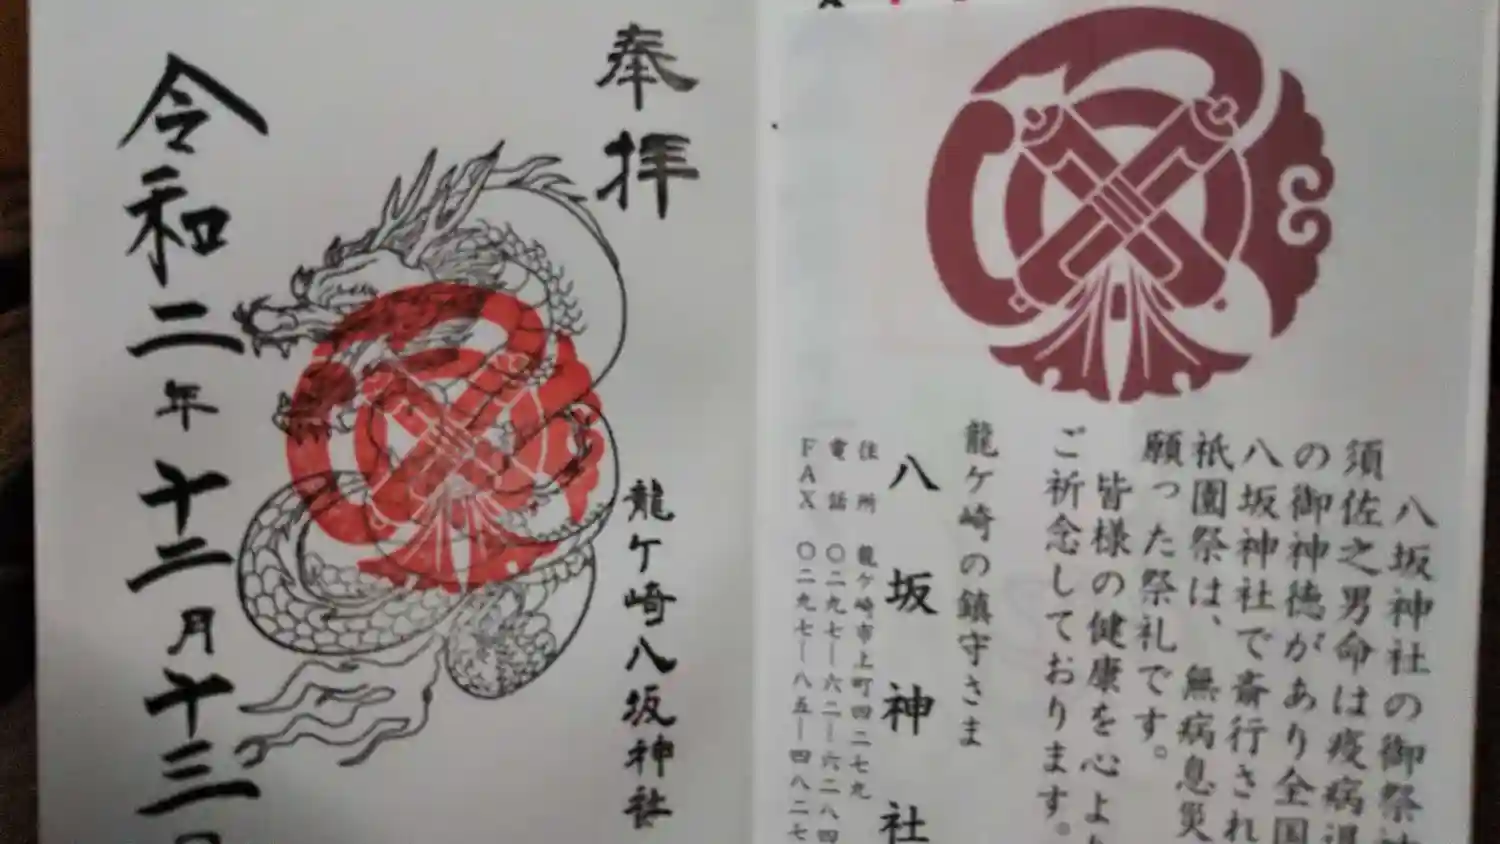 奉拝
龍ケ崎八坂神社
令和二年十二月十三日
八坂神社の御祭神
須佐之男命は疫病退
の御神徳があり全国
八坂神社で斎行され
祇園祭は、無病息災
願った祭礼です。
皆様の健康を心より
ご祈念しております。
龍ケ崎の鎮守さま
八坂神社
住所 龍ケ崎市上町四二七九
電話 〇二九七―六二―六二八四
FAX 〇二九七―八五―四八二七